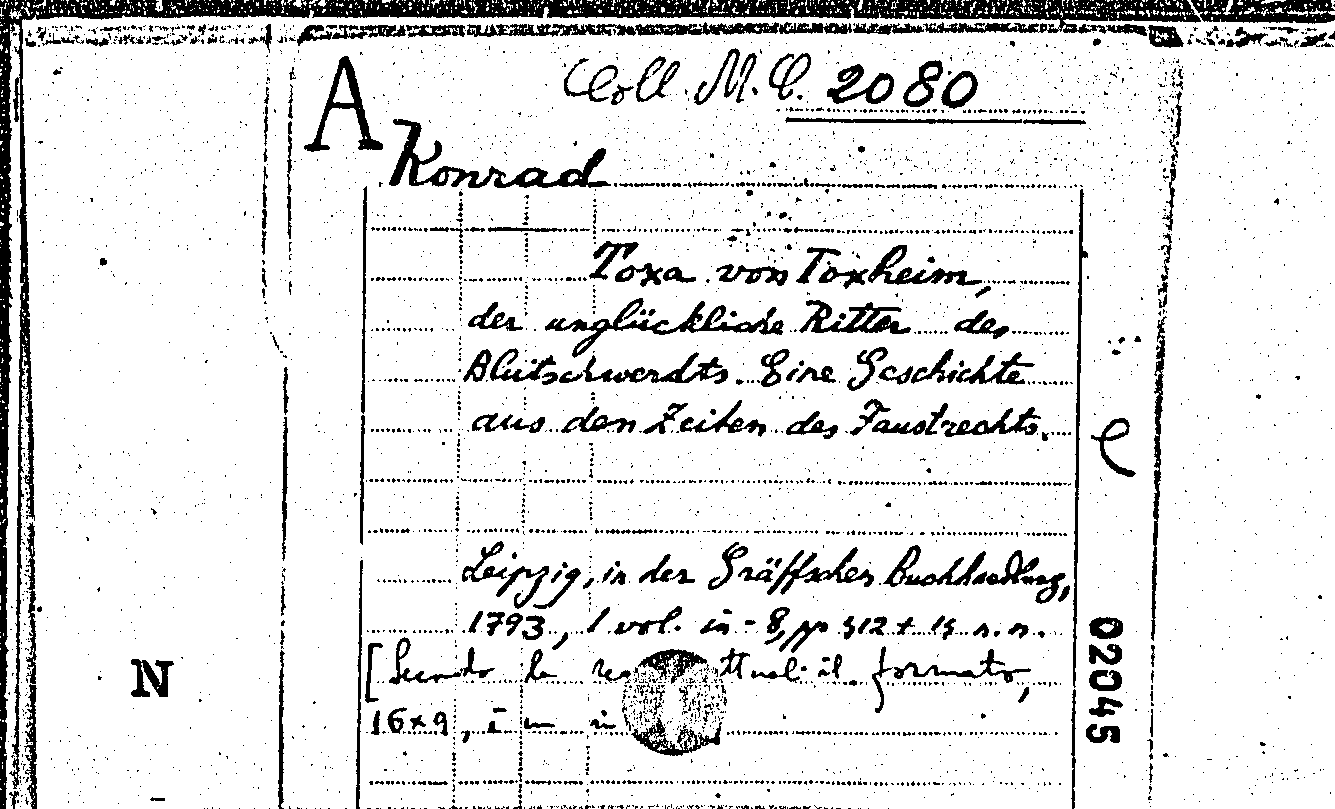 A
Coll. M. C. 2080
Konrad
Toxa von Toxheim,
der unglückliche Ritter des
Blutschwerdts. Eine Geschichte
aus den Zeiten des Faustrechts.
e
Leipzig, in der Gräffschen Buchhandlung,
1793, 1 vol. in-8, pp 312 + n. n.
[Secondo le attuali il formato,
16x9, è un in
N
02045